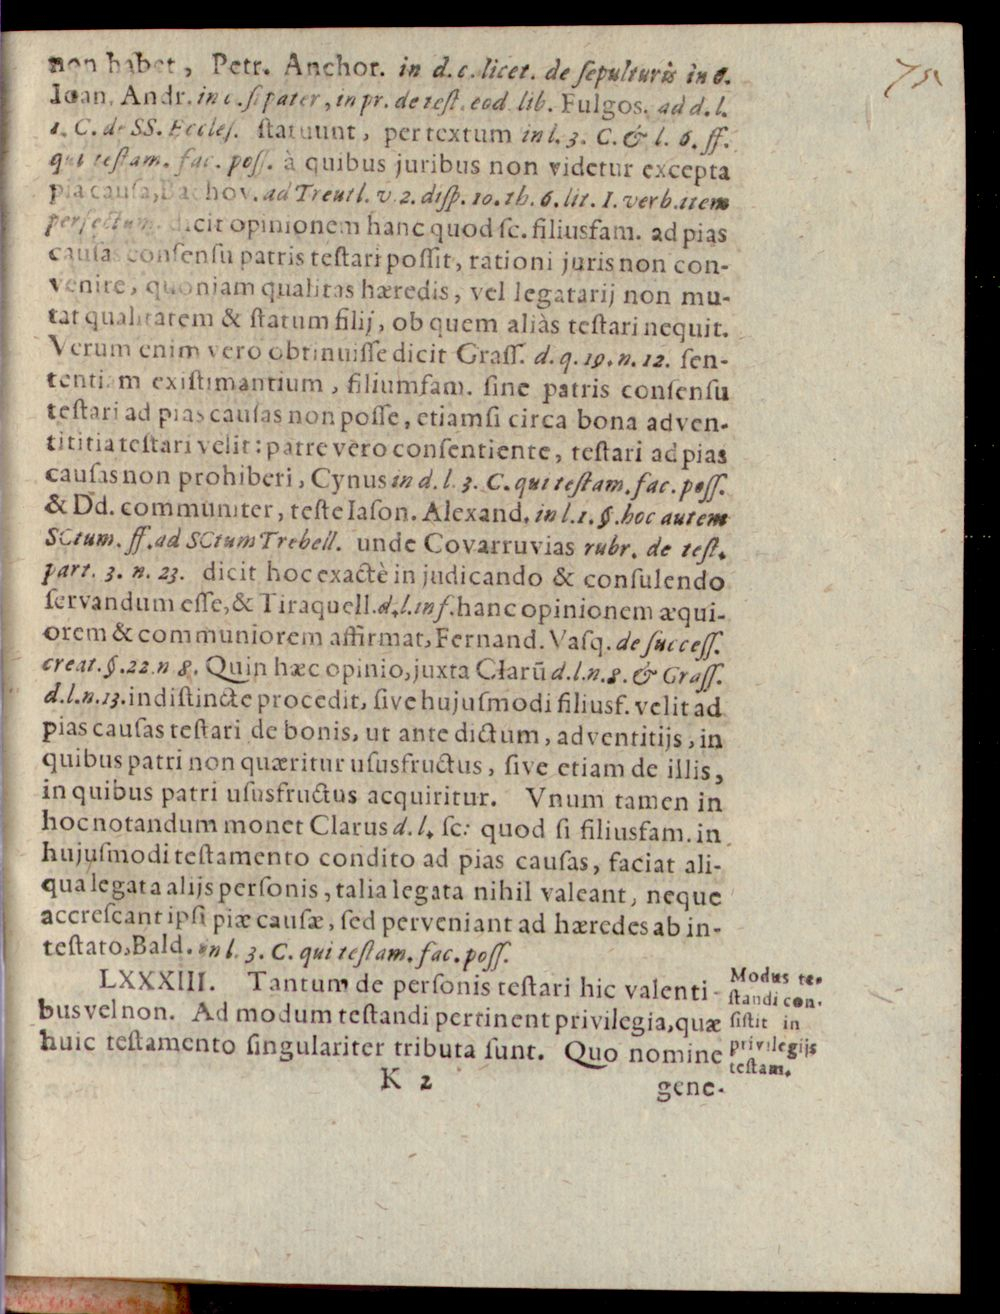 75
non habet, Petr. Anchor. in d. c. licet. de ſepulturis in 6.
Ioan. Andr. in c. ſi pater, in pr. de teſt. eod. lib. Fulgos. ad d. l.
1. C. de SS. Eccleſ. ſtatuunt, per textum in l. 3. C. & l. 6. ff.
qui teſtam. fac. poſſ. à quibus juribus non videtur excepta
pia cauſa, Bachov. ad Treutl. v. 2. diſp. 10. th. 6. lit. I. verb. item
perfectum. dicit opinionem hanc quod ſc. filiusfam. ad pias
cauſas conſenſu patris teſtari poſſit, rationi juris non con-
venire, quoniam qualitas hæredis, vel legatarij non mu-
tat qualitatem & ſtatum filij, ob quem aliàs teſtari nequit.
Verum enim vero obtinuiſſe dicit Graſſ. d. q. 19. n. 12. ſen-
tentiam exiſtimantium, filiumfam. ſine patris conſenſu
teſtari ad pias cauſas non poſſe, etiamſi circa bona adven-
tititia teſtari velit: patre vero conſentiente, teſtari ad pias
cauſas non prohiberi, Cynus in d. l. 3. C. qui teſtam. fac. poſſ.
& Dd. communiter, teſte Iaſon. Alexand. in l. 1. §. hoc autem
SCtum. ff. ad SCtum Trebell. unde Covarruvias rubr. de teſt.
part. 3. n. 23. dicit hoc exactè in judicando & conſulendo
ſervandum eſſe, & Tiraquell. d. l. inf. hanc opinionem æqui-
orem & communiorem affirmat, Fernand. Vaſq. de ſucceſſ.
creat. §. 22. n 8. Quin hæc opinio, juxta Clarū d. l. n. 8. & Graſſ.
d. l. n. 13. indiſtincte procedit, ſive hujuſmodi filiusf. velit ad
pias cauſas teſtari de bonis, ut ante dictum, adventitijs, in
quibus patri non quæritur uſusfructus, ſive etiam de illis,
in quibus patri uſusfructus acquiritur. Vnum tamen in
hoc notandum monet Clarus d. l. ſc: quod ſi filiusfam. in
hujuſmodi teſtamento condito ad pias cauſas, faciat ali-
qua legata alijs perſonis, talia legata nihil valeant, neque
accreſcant ipſi piæ cauſæ, ſed perveniant ad hæredes ab in-
teſtato, Bald. in l. 3. C. qui teſtam. fac. poſſ.
LXXXIII. Tantum de perſonis teſtari hic valenti-
bus vel non. Ad modum teſtandi pertinent privilegia, quæ
huic teſtamento ſingulariter tributa ſunt. Quo nomine
Modus te-
ſtandi con-
ſiſtit in
privilegijs
teſtam.
K 2
gene-